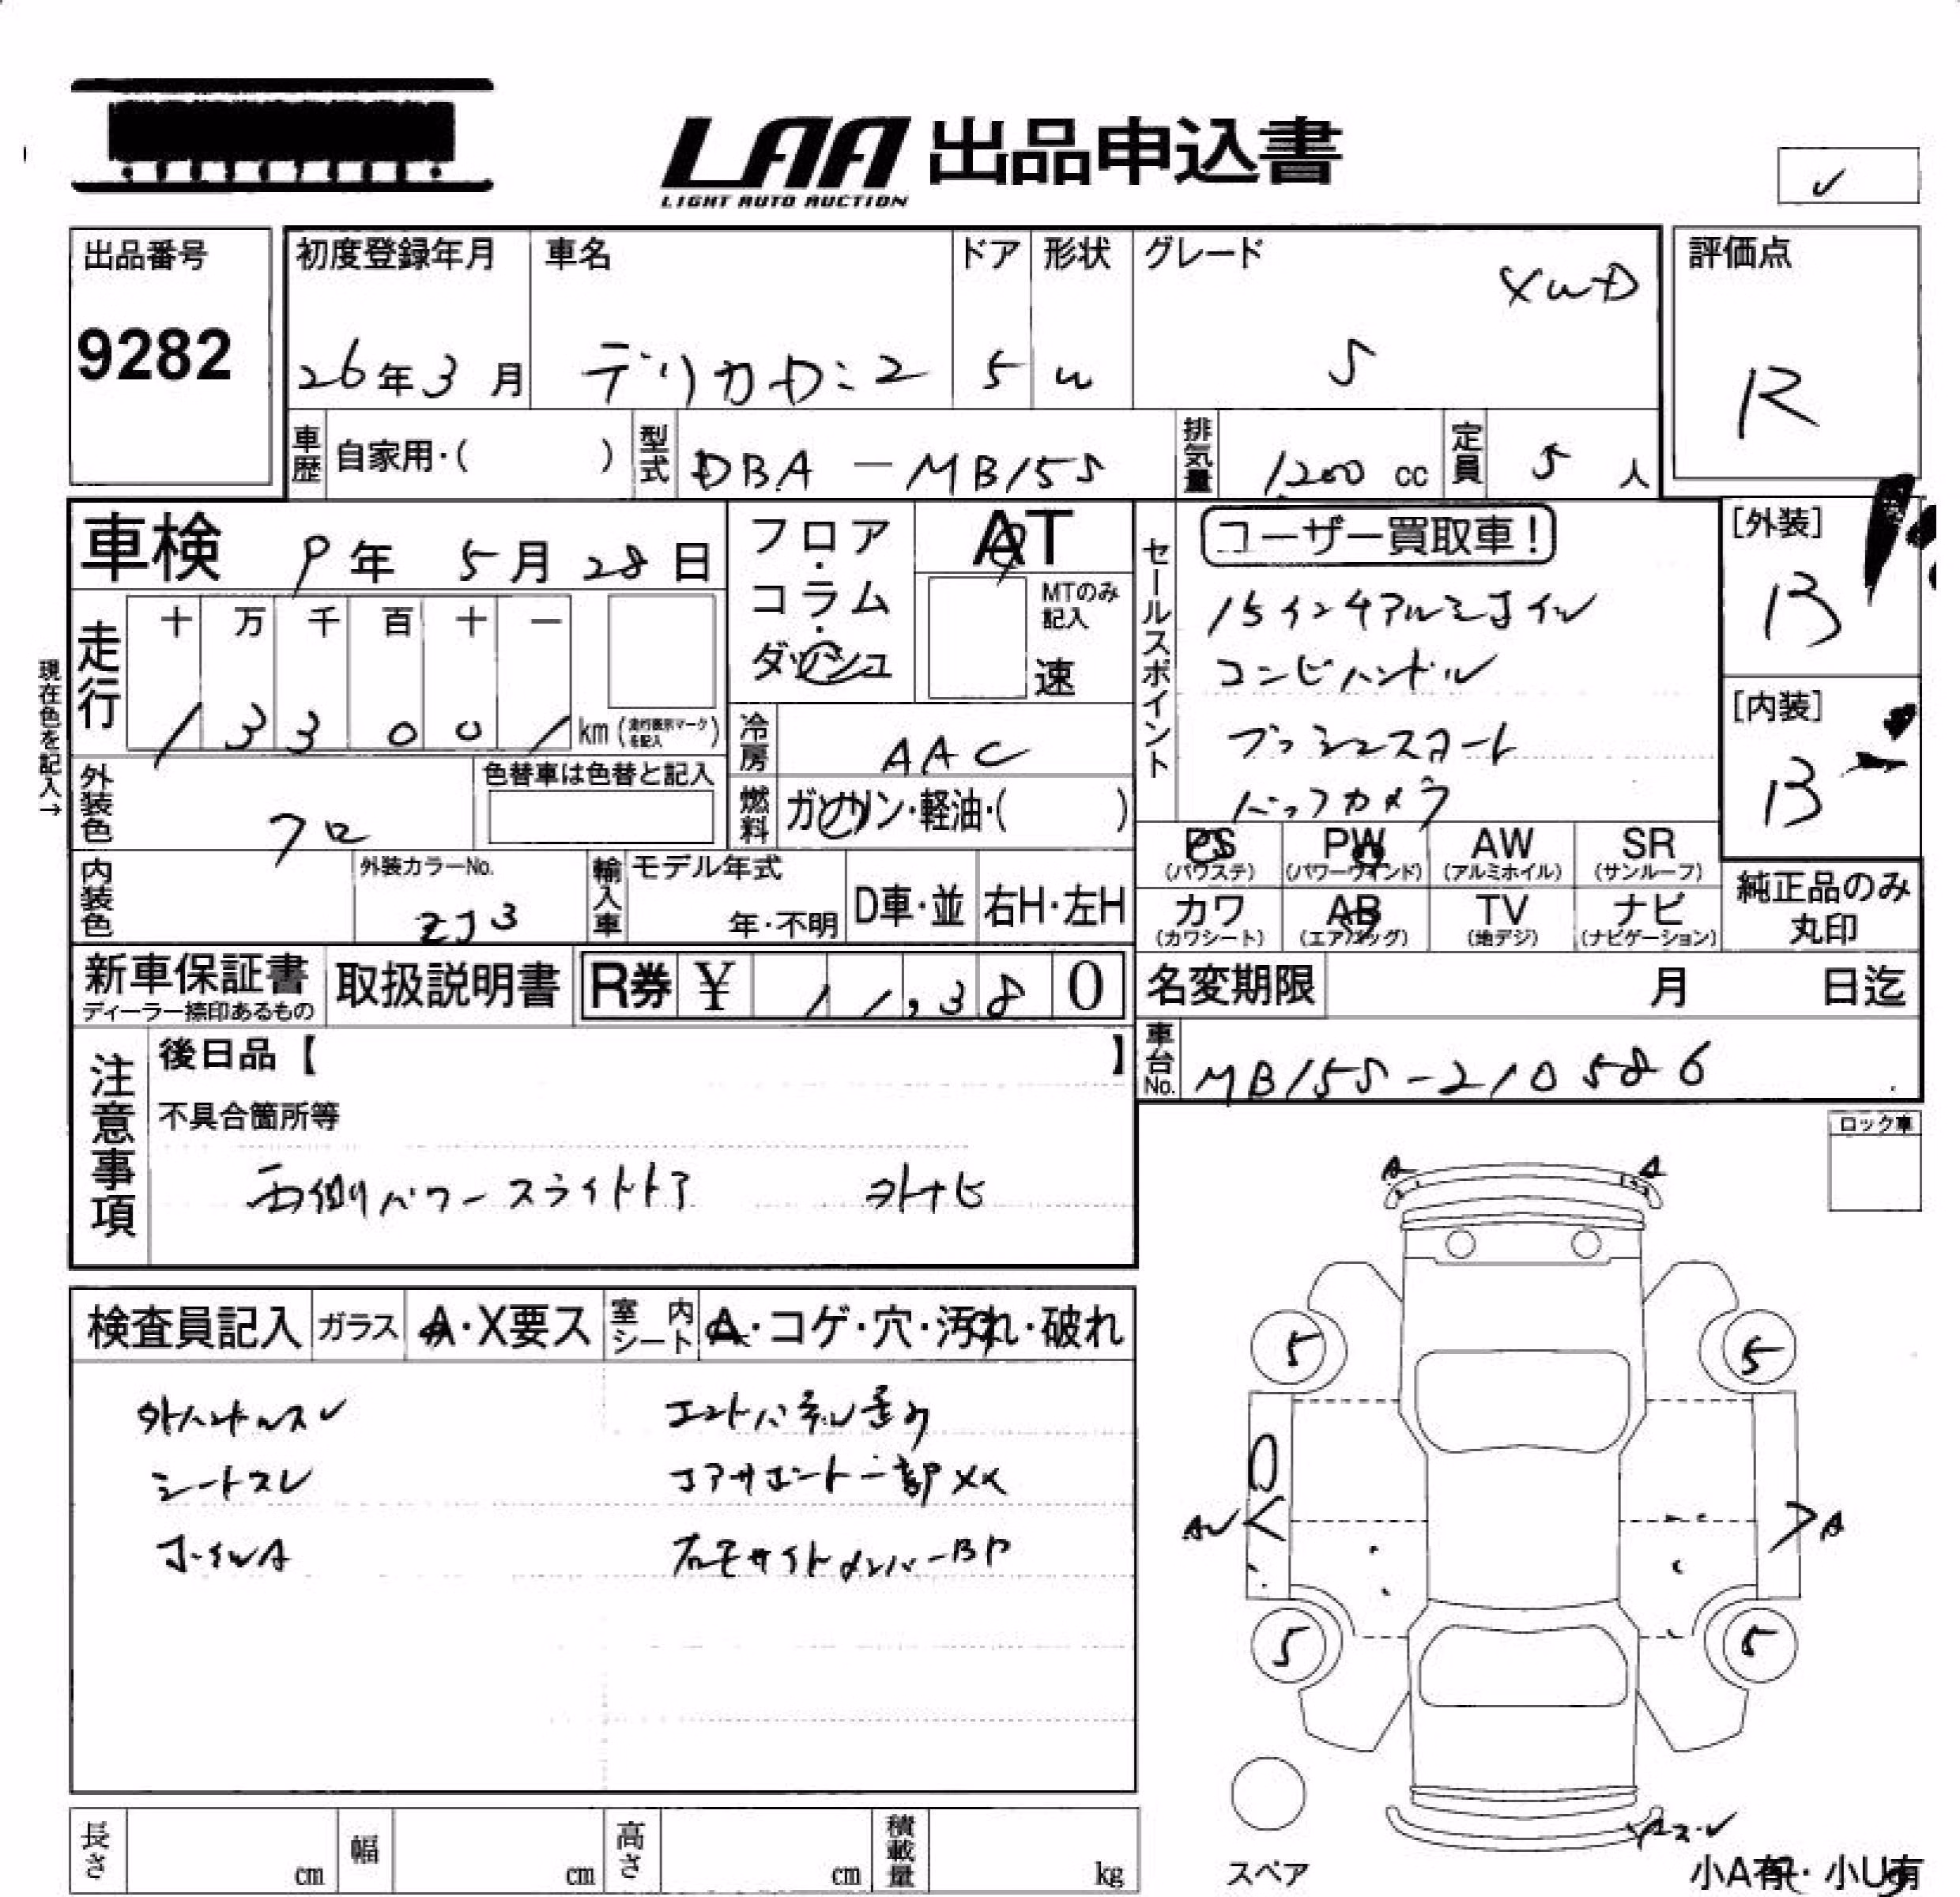 LAA 出品申込書
LIGHT AUTO AUCTION
✓
出品番号
9282
初度登録年月
26年3月
車名
デリカD:2
ドア
5
形状
W
グレード
XWD
S
評価点
R
車歴 自家用・( )
型式 DBA-MB15S
排気量 1200 cc
定員 5人
車検 9年 5月 28日
フロア・コラム・ダッシュ
AT
MTのみ記入
速
現在色を記入→
走行
十 万 千 百 十 一
1 3 3 0 0 1 km (走行表示マークを記入)
冷房 AAC
燃料 ガソリン・軽油・( )
外装色 クロ
色替車は色替と記入
内装色
外装カラーNo.
ZJ3
輸入車
モデル年式
年・不明
D車・並
右H・左H
セールスポイント
ユーザー買取車!
15インチアルミホイル
コンビハンドル
プッシュスタート
バックカメラ
[外装]
B
[内装]
B
PS (パワステ)
PW (パワーウィンド)
AW (アルミホイル)
SR (サンルーフ)
カワ (カワシート)
AB (エアバッグ)
TV (地デジ)
ナビ (ナビゲーション)
純正品のみ丸印
新車保証書
ディーラー捺印あるもの
取扱説明書
R券 ¥ 11,380
名変期限 月 日迄
車台No. MB15S-210586
注意事項
後日品【 】
不具合箇所等
両側パワースライドドア 外ナビ
ロック車
検査員記入
ガラス A・X要ス
室内シート A・コゲ・穴・汚れ・破れ
外ハンドルスレ
シートスレ
ホイルA
エンドパネル歪み
コアサポート一部XX
右モサイドメンバーBP
A
A
5
5
AU
A
5
5
スペア
小A有・小U有
長さ cm
幅 cm
高さ cm
積載量 kg